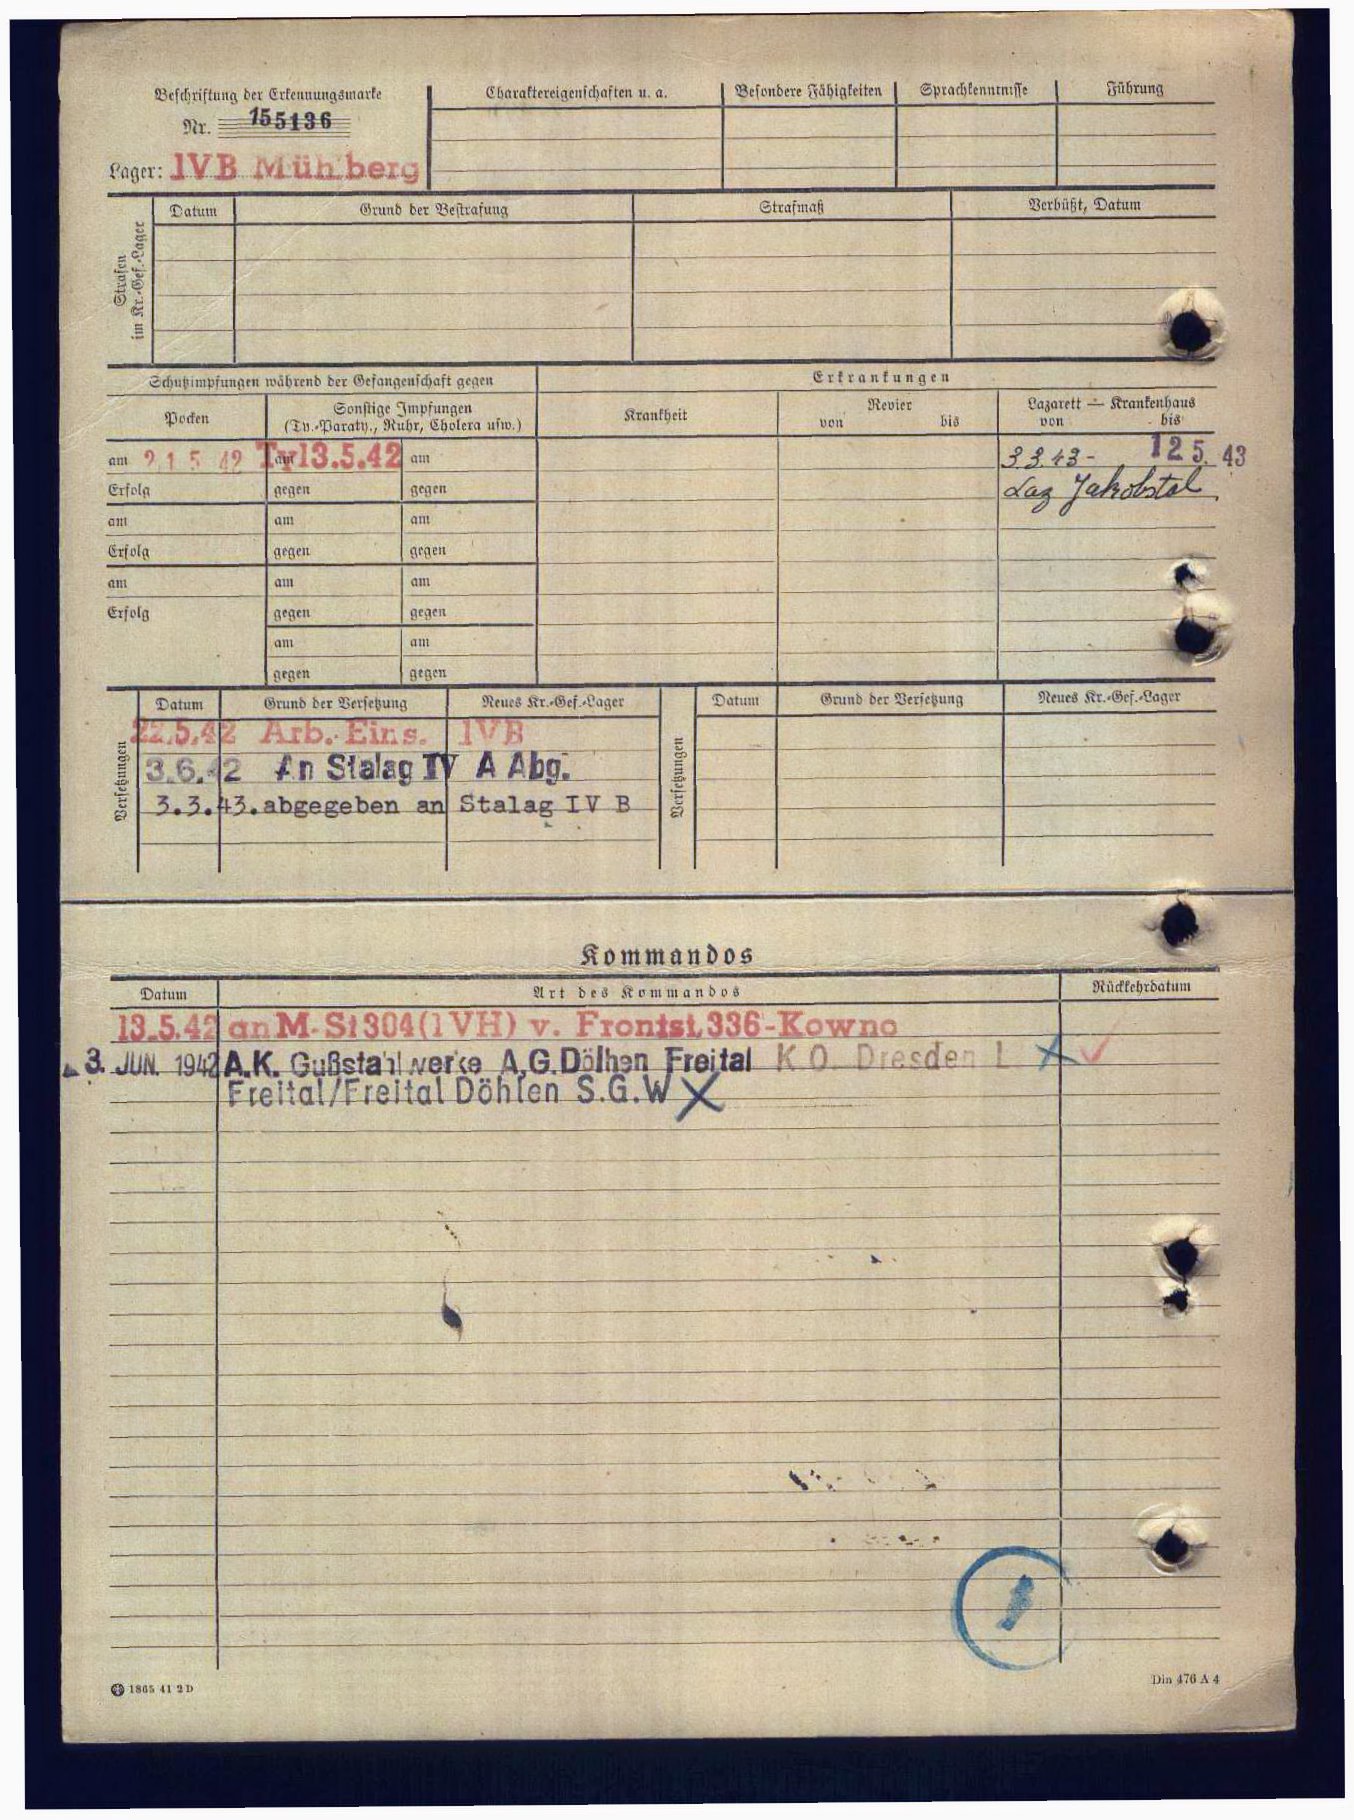 Beschriftung der Erkennungsmarke
Nr. 155136
Lager: IVB Mühlberg
Charaktereigenschaften u. a.
Besondere Fähigkeiten
Sprachkenntnisse
Führung
Strafen im Kr.-Gef.-Lager
Datum
Grund der Bestrafung
Strafmaß
Verbüßt, Datum
Schutzimpfungen während der Gefangenschaft gegen
Erkrankungen
Pocken
Sonstige Impfungen
(Ty.-Paraty., Ruhr, Cholera usw.)
Krankheit
Revier
von bis
Lazarett — Krankenhaus
von bis
am 21.5.42 Ty am 13.5.42 am
3.3.43- 12.5.43
Erfolg gegen gegen
Laz Jakobstal
am am am
Erfolg gegen gegen
am am am
Erfolg gegen gegen
am am
gegen gegen
Versetzungen
Datum Grund der Versetzung Neues Kr.-Gef.-Lager
22.5.42 Arb. Eins. IVB
3.6.42 An Stalag IV A Abg.
3.3.43. abgegeben an Stalag IV B
Versetzungen
Datum Grund der Versetzung Neues Kr.-Gef.-Lager
Kommandos
Datum Art des Kommandos Rückkehrdatum
13.5.42 an M-St 304 (IVH) v. Frontst. 336-Kowno
3. JUN. 1942 A.K. Gußstahlwerke A.G. Dölhen Freital K O. Dresden L
Freital/Freital Döhlen S.G.W
1865 41 2 D
Din 476 A 4